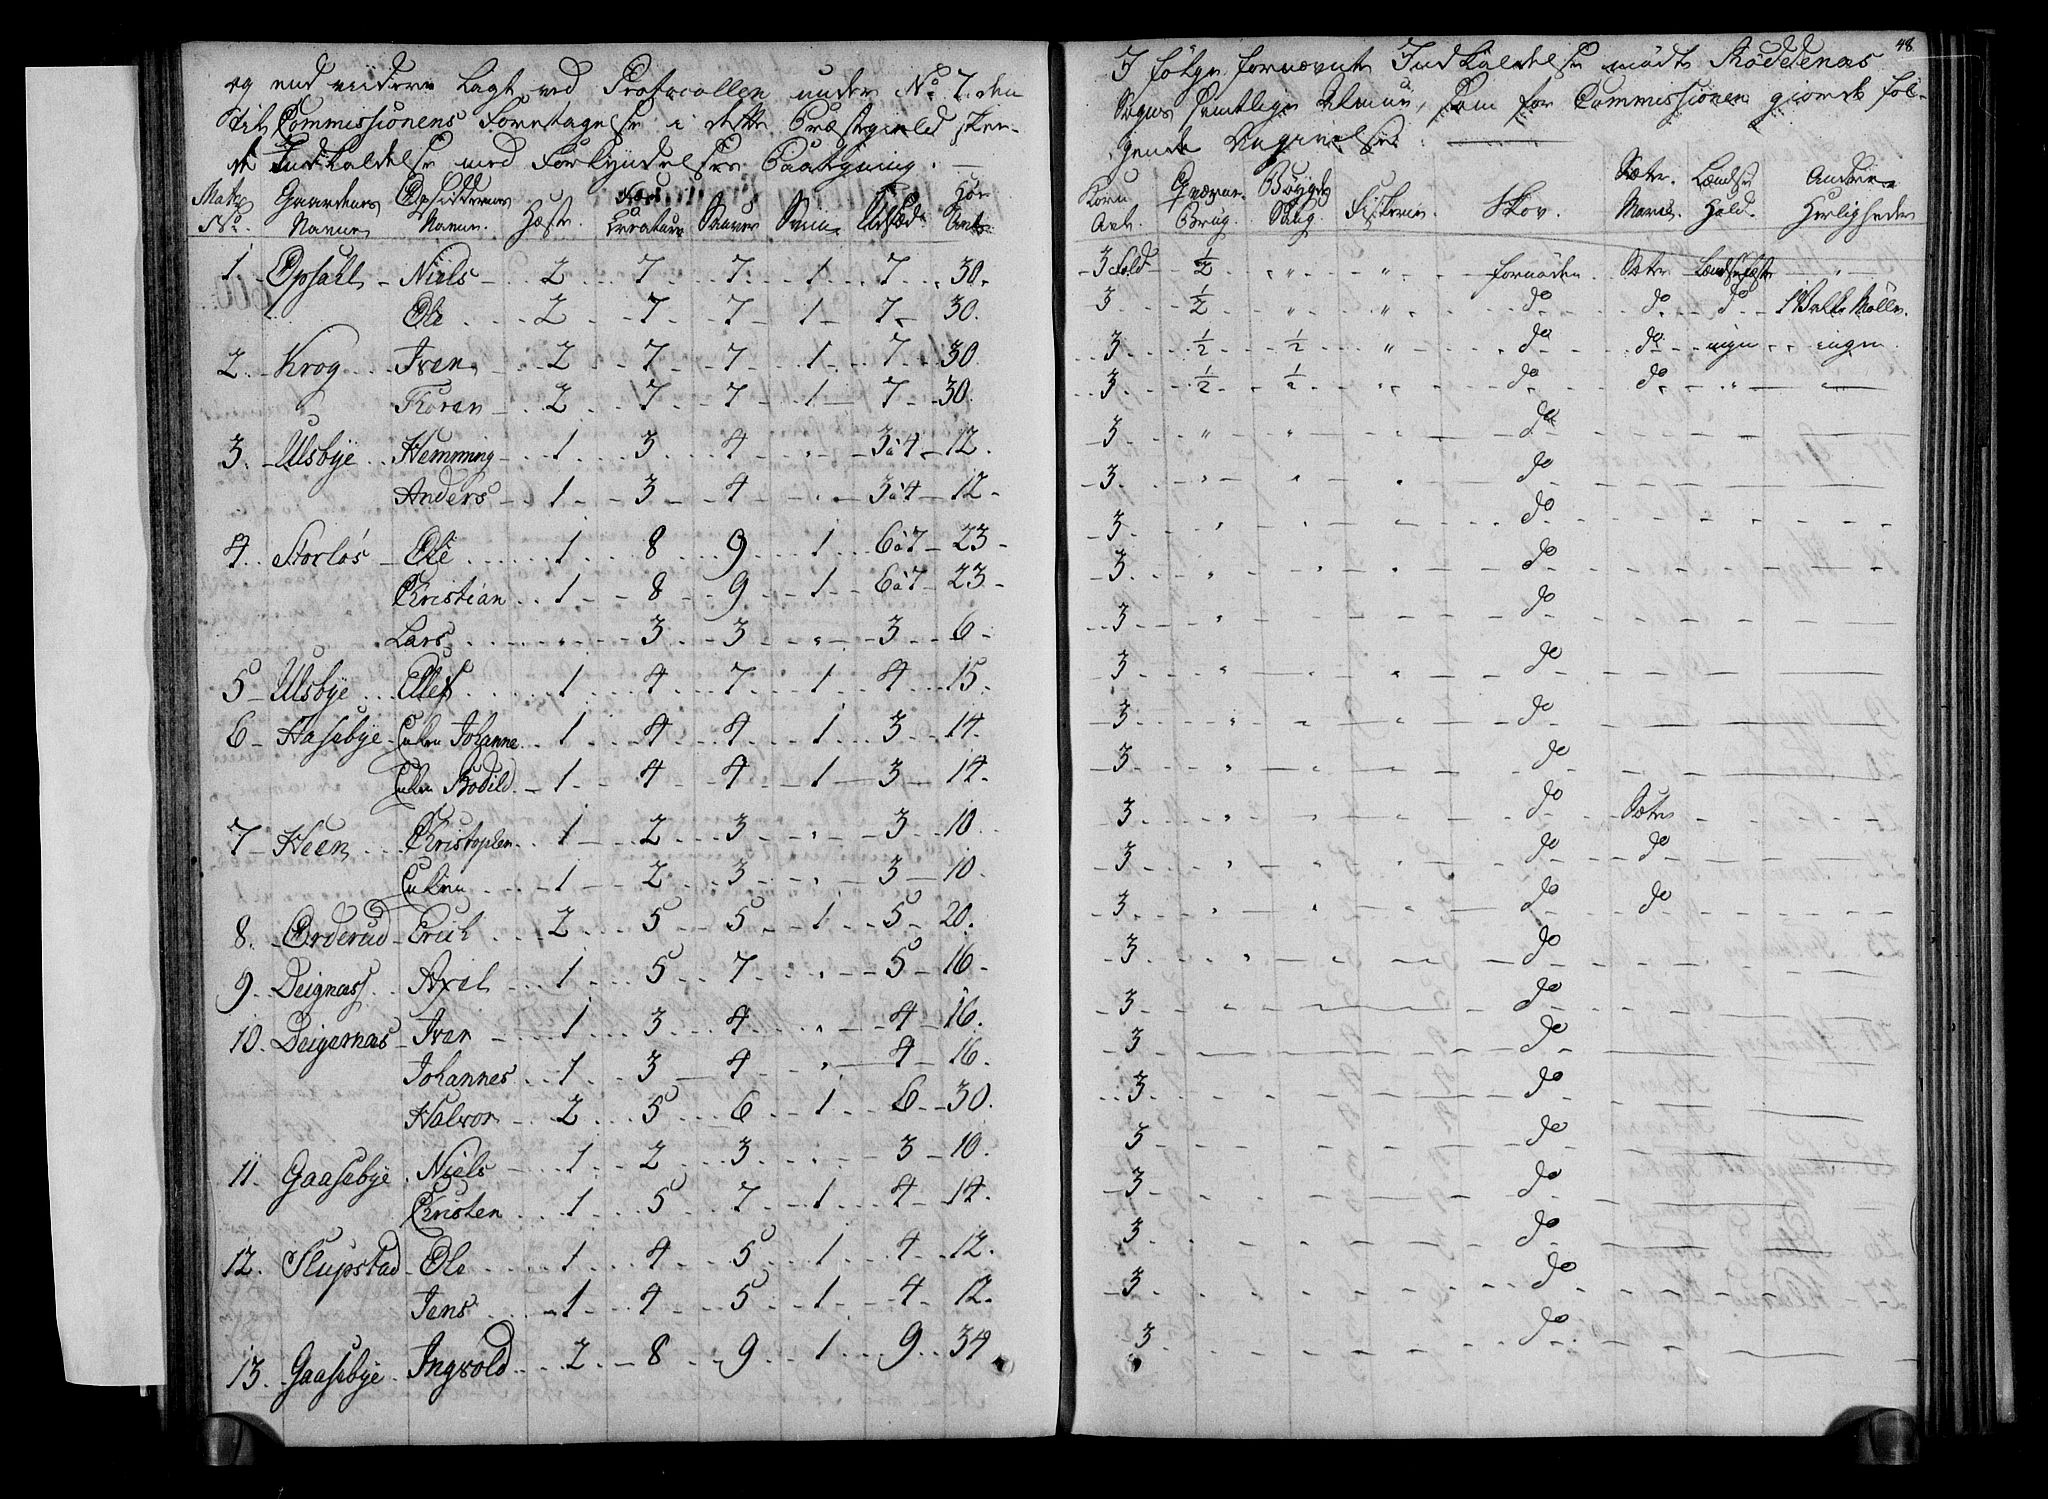 og end videre Lagt ved Protocollen under No. 7. den
til Commissionens Foretagelse i dette Præstegield skee-
de Indkaldelse med Forkyndelses Paategning.
Matr. No. Gaardenes Navne Opsiddernes Navne. Hæste. Creature Sauer Sviin Udsæd. Høe Avl.
1 Opsahl - Niels - 2 7 7 1 7 30.
Ole 2 7 7 1 7 30.
2. Krog Iven 2 7 7 1 7 30
Thoren 2 7 7 1 7 30.
3. Ulsbye Hemming 1 3 4 " 3 a 4 12.
Anders 1 3 4 " 3 a 4 12
4. Storløs Ole 1 8 9 1 6 a 7 23
Christian 1 8 9 1 6 a 7 23
Lars " 3 3 " 3 6
5 Ulsbye Ellef 1 4 7 1 4 15.
6 Hasebye Enken Johanne 1 4 4 1 3 14.
Enken Bodild 1 4 4 1 3 14.
7 Heen Christopher 1 2 3 " 3 10
Enken 1 2 3 " 3 10.
8. Orderud Erich 2 5 5 1 5 20.
9. Deignæss. Axel 1 5 7 " 5 16
10. Deigernæs Iver 1 3 4 " 4 16.
Johannes 1 3 4 " 4 16.
Halvor 2 5 6 1 6 30.
11. Gaasebye Niels 1 2 3 " 3 10.
Christen 1 5 7 1 4 14.
12. Slupstad Ole 1 4 5 1 4 12.
Jens 1 4 5 1 4 12.
13. Gaasebye Ingvold 2 8 9 1 9 34
48.
I følge fornævnte Indkaldelse mødte Rødenæs
Sogns samtlige Almue, som for Commissionen giorde føl-
gende Angivelse:
Korn Avl. Qværne Brug. Bøygde Saug. Fiskerie. Skov. Sæter Havn. Lændse Hold. Andre Herligheder
3 Fold ½ " " fornøden. Sæter Lændsefæste "
3 ½ " " do do do
3 ½ ½ " do do ingen ingen
3 ½ ½ " do do " "
3 " " do
3 " " " do
3 " " " do
3 " " " do
3 " " " do
3 " " " do
3 " " " do
3 " " " do
3 " " " do Sæter
3 " " " do do
3 " " " do do
3 " " " do
3 do
3 do
3 do
3 do
3 do
3 do
3 do
3 do